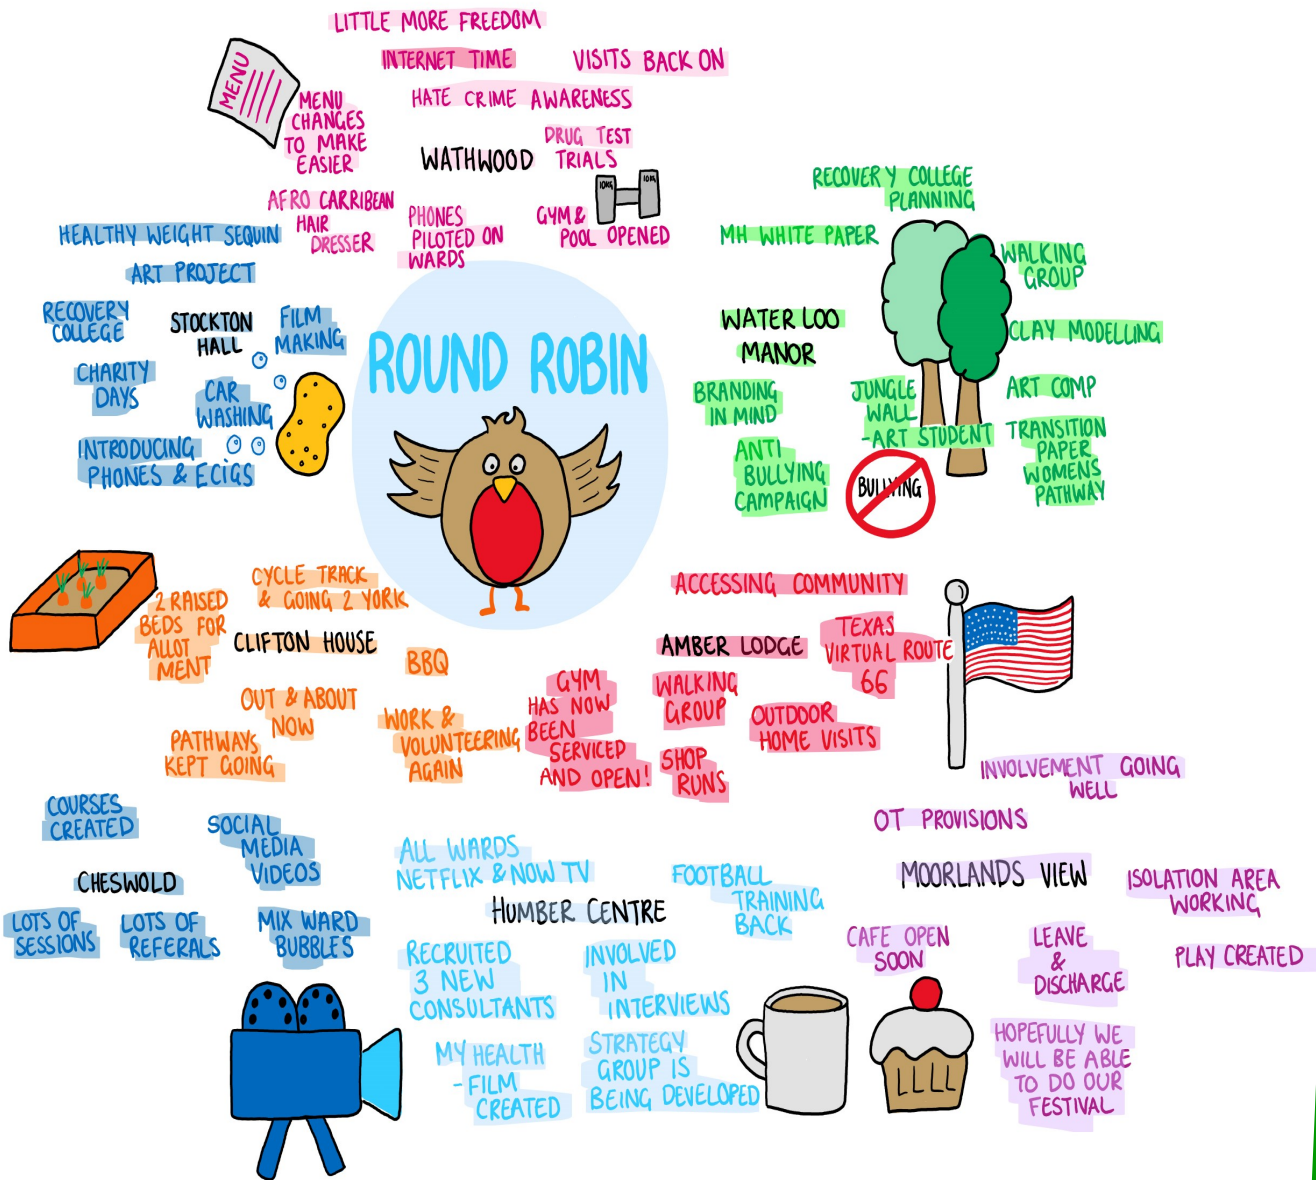 LITTLE MORE FREEDOM
INTERNET TIME
VISITS BACK ON
MENU
MENU
CHANGES
TO MAKE
EASIER
HATE CRIME AWARENESS
WATHWOOD
DRUG TEST
TRIALS
AFRO CARRIBEAN
HAIR
DRESSER
PHONES
PILOTED ON
WARDS
GYM &
POOL OPENED
10KG
10KG
HEALTHY WEIGHT SEQUIN
ART PROJECT
RECOVERY
COLLEGE
STOCKTON
HALL
FILM
MAKING
CHARITY
DAYS
CAR
WASHING
INTRODUCING
PHONES & ECIGS
ROUND ROBIN
RECOVERY COLLEGE
PLANNING
MH WHITE PAPER
WALKING
GROUP
WATER LOO
MANOR
CLAY MODELLING
BRANDING
IN MIND
JUNGLE
WALL
-ART STUDENT
ART COMP
ANTI
BULLYING
CAMPAIGN
BULLYING
TRANSITION
PAPER
WOMENS
PATHWAY
CYCLE TRACK
& GOING 2 YORK
2 RAISED
BEDS FOR
ALLOT
MENT
CLIFTON HOUSE
BBQ
OUT & ABOUT
NOW
PATHWAYS
KEPT GOING
WORK &
VOLUNTEERING
AGAIN
ACCESSING COMMUNITY
AMBER LODGE
TEXAS
VIRTUAL ROUTE
66
GYM
HAS NOW
BEEN
SERVICED
AND OPEN!
WALKING
GROUP
OUTDOOR
HOME VISITS
SHOP
RUNS
COURSES
CREATED
SOCIAL
MEDIA
VIDEOS
CHESWOLD
LOTS OF
SESSIONS
LOTS OF
REFERALS
MIX WARD
BUBBLES
ALL WARDS
NETFLIX & NOW TV
FOOTBALL
TRAINING
BACK
HUMBER CENTRE
RECRUITED
3 NEW
CONSULTANTS
INVOLVED
IN
INTERVIEWS
MY HEALTH
-FILM
CREATED
STRATEGY
GROUP IS
BEING DEVELOPED
INVOLVEMENT GOING
WELL
OT PROVISIONS
MOORLANDS VIEW
ISOLATION AREA
WORKING
CAFE OPEN
SOON
LEAVE
&
DISCHARGE
PLAY CREATED
HOPEFULLY WE
WILL BE ABLE
TO DO OUR
FESTIVAL